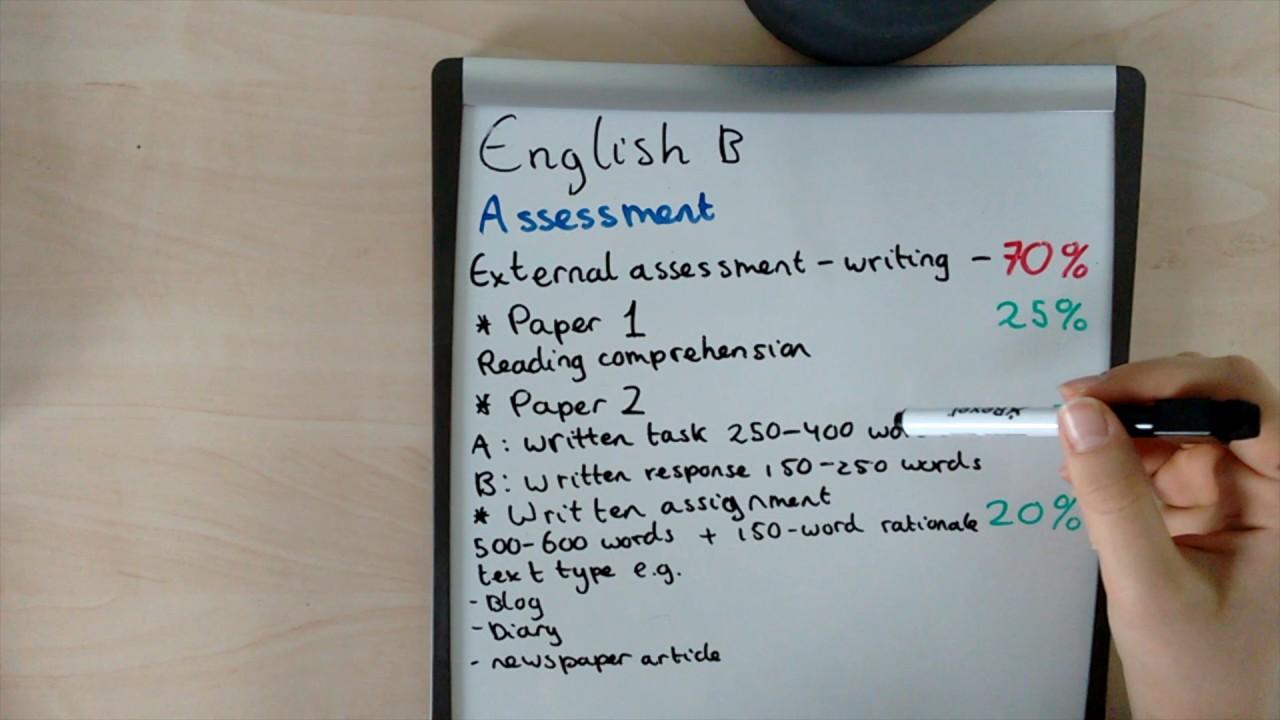 English B
Assessment
External assessment - writing - 70%
* Paper 1 25%
Reading comprehension
* Paper 2
A: written task 250-400
B: written response 150-250 words
* Written assignment
500-600 words + 150-word rationale 20%
text type e.g.
- Blog
- Diary
- newspaper article
Rexel